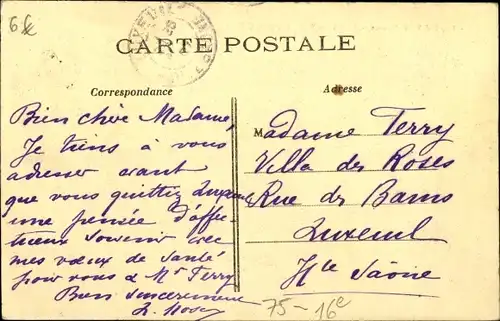 6 f
CARTE POSTALE
Correspondance
Adresse
Bien chère Madame,
Je tiens à vous
adresser avant
que vous quittiez Luxeuil
une pensée d'affec
tueux souvenir avec
mes vœux de santé
pour vous & Mr Terry
Bien sincèrement
Madame Terry
Villa des Roses
Rue des Bains
Luxeuil
Hte Saône
75-16e